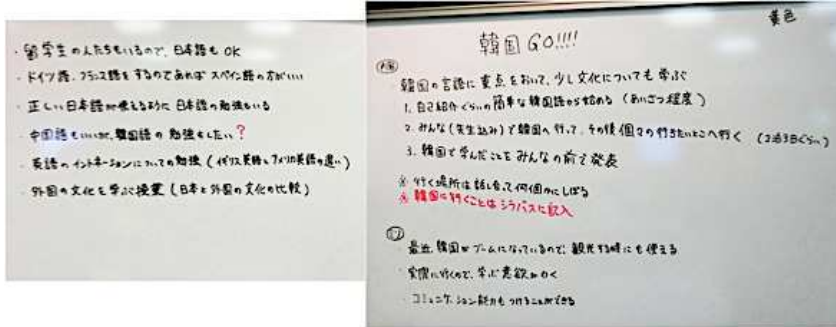 ・留学生の人たちもいるので、日本語も OK
・ドイツ語、フランス語をするのであれば スペイン語の方がいい
・正しい日本語が使えるように 日本語の勉強もいる
・中国語もいいが、韓国語の 勉強もしたい?
・英語の イントネーションについての勉強 (イギリス英語とアメリカ英語の違い)
・外国の文化を学ぶ授業 (日本と外国の文化の比較)
黄色
韓国 GO!!!!
内容
韓国の言語に重点をおいて、少し文化についても 学ぶ
1. 自己紹介ぐらいの簡単な韓国語から始める (あいさつ程度)
2. みんな(先生込み)で韓国へ行って、その後 個々の行きたいとこへ行く (2泊3日ぐらい)
3. 韓国で学んだことを みんなの前で発表
※ 行く場所は 話し合って何個かにしぼる
※ 韓国に行くことは シラバスに記入
・最近、韓国がブームになっているので、観光する時にも 使える
・実際に行くので、学ぶ意欲がわく
・コミュニケーション能力もつけることができる